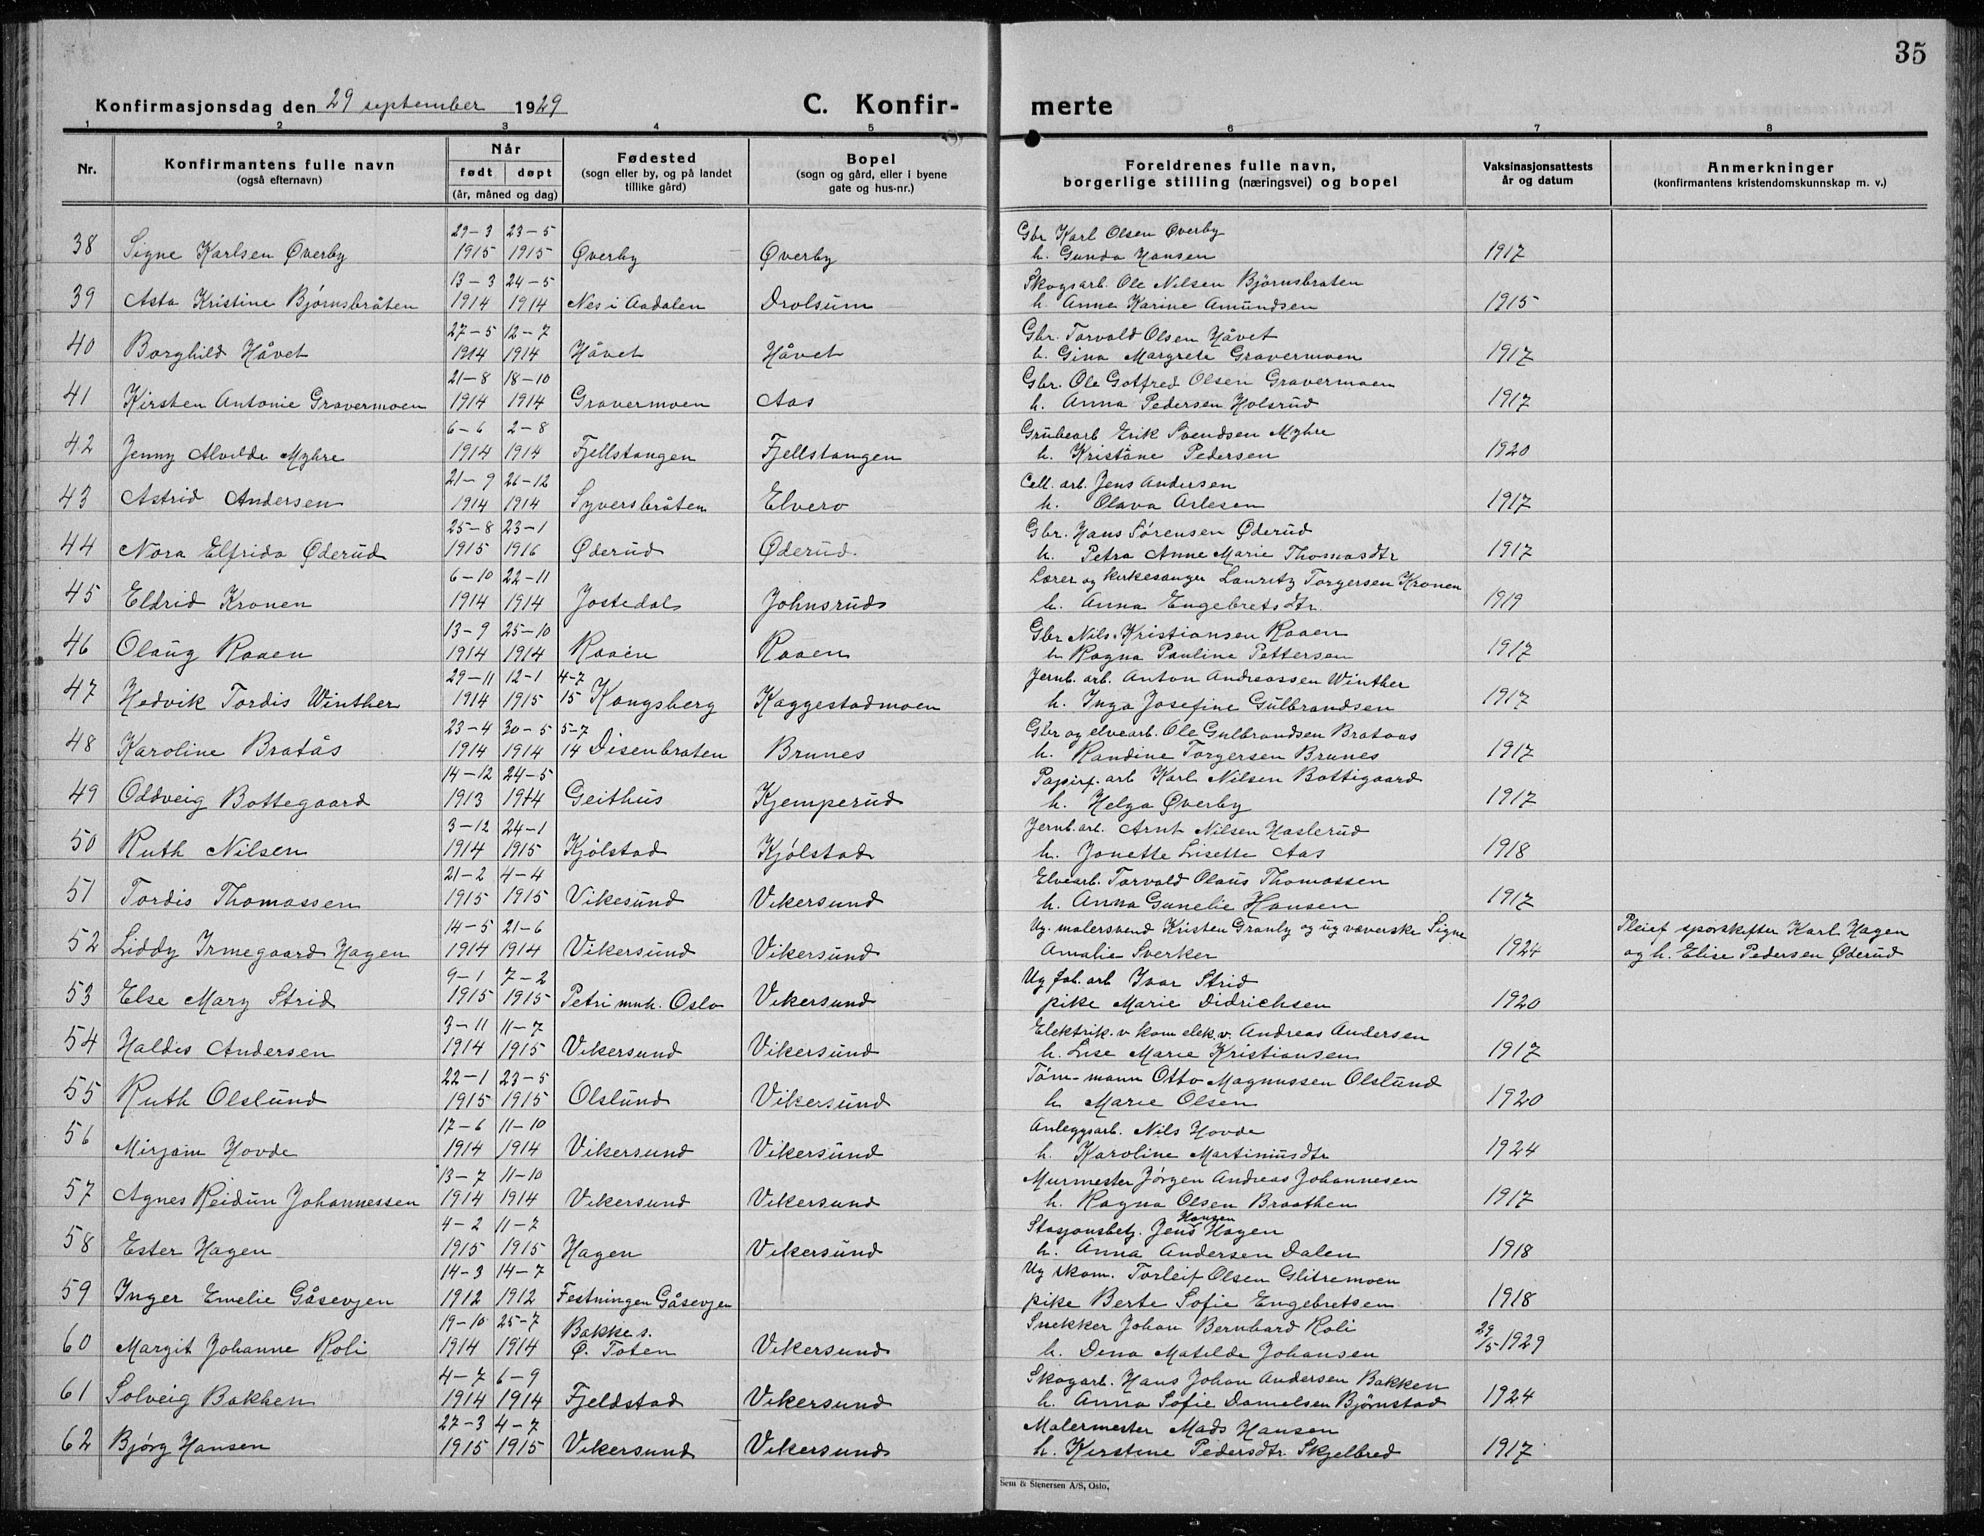 35
Konfirmasjonsdag den 29 september 1929 C. Konfir- merte
1 2 3 4 5 6 7 8
Nr. Konfirmantens fulle navn (også efternavn) Når født døpt (år, måned og dag) Fødested (sogn eller by, og på landet tillike gård) Bopel (sogn og gård, eller i byene gate og hus-nr.) Foreldrenes fulle navn, borgerlige stilling (næringsvei) og bopel Vaksinasjonsattests år og datum Anmerkninger (konfirmantens kristendomskunnskap m. v.)
29-3 23-5 Gbr Karl Olsen Øverby
38 Signe Karlsen Øverby 1915 1915 Øverby Øverby h. Gunda Hansen 1917
13-3 24-5 Skogsarb. Ole Nilsen Bjørnsbråten
39 Asta Kristine Bjørnsbråten 1914 1914 Nes i Aadalen Drolsum h. Anne Karine Amundsen 1915
27-5 12-7 Gbr. Torvald Olsen Håvet
40 Borghild Håvet 1914 1914 Håvet Håvet h. Gina Margrete Gravermoen 1917
21-8 18-10 Gbr. Ole Gotfred Olsen Gravermoen
41 Kirsten Antonie Gravermoen 1914 1914 Gravermoen Aas h. Anna Pedersen Holsrud 1917
6-6 2-8 Grubearb Erik Svendsen Myhre
42 Jenny Alvilde Myhre 1914 1914 Fjellstangen Fjellstangen h. Kristine Pedersen 1920
21-9 26-12 Cell. arb. Jens Andersen
43 Astrid Andersen 1914 1914 Syversbråten Elvero h. Olava Arlesen 1917
25-8 23-1 Gbr. Hans Sørensen Øderud
44 Nora Elfrida Øderud 1915 1916 Øderud Øderud. h. Petra Anne Marie Thomasdtr 1917
6-10 22-11 Lærer og kirkesanger Lauritz Torgersen Kronen
45 Eldrid Kronen 1914 1914 Jostedal Johnsrud h. Anna Engebretsdtr. 1919
13-9 25-10 Gbr Nils Kristiansen Raaen
46 Olaug Raaen 1914 1914 Raaen Raaen h Ragna Pauline Pettersen 1917
29-11 12-1 4-7 Jernb. arb. Anton Andreassen Winther
47 Hedvik Tordis Winther 1914 1915 15 Kongsberg Kaggestadmoen h. Inga Josefine Gulbrandsen 1917
23-4 30-5 5-7 Gbr og elvearb. Ole Gulbrandsen Brataas
48 Karoline Bratås 1914 1914 14 Disenbraten Brunes h. Randine Torgersen Brunes 1917
14-12 24-5 Papirf. arb Karl Nilsen Bottigaard
49 Oddveig Bottegaard 1913 1914 Geithus Kjemperud h. Helga Øverby 1917
3-12 24-1 Jernb. arb. Arnt Nilsen Haslerud
50 Ruth Nilsen 1914 1915 Kjølstad Kjølstad h. Jonette Lisette Aas 1918
21-2 4-4 Elvearb. Torvald Olaus Thomassen
51 Tordis Thomassen 1915 1915 Vikesund Vikersund h. Anna Gunelie Hansen 1917
14-5 21-6 Ug. malersvend Kristen Granly og ug væverske Signe Pleief sporskifter Karl Hagen
52 Liddy Irmegaard Hagen 1914 1914 Vikersund Vikersund Amalie Sverker 1924 og h. Elise Pedersen Øderud
9-1 7-2 Ug fab. arb Ivar Strid
53 Else Mary Strid 1915 1915 Petri mnh. Oslo Vikersund pike Marie Didrichsen 1920
3-11 11-7 Elektrik. v kom elek.v. Andreas Andersen
54 Haldis Andersen 1914 1915 Vikersund Vikersund h. Lise Marie Kristiansen 1917
22-1 23-5 Töm-mann Otto Magnussen Olslund
55 Ruth Olslund 1915 1915 Olslund Vikersund h Marie Olsen 1920
17-6 11-10 Anleggsarb. Nils Hovde
56 Mirjam Hovde 1914 1914 Vikersund Vikersund h. Karoline Martiniusdtr 1924
13-7 11-10 Murmester Jørgen Andreas Johannesen
57 Agnes Reidun Johannessen 1914 1914 Vikersund Vikersund h. Ragna Olsen Braathen 1917
4-2 11-7 Stasjonsbetj. Jens Hansen Hagen
58 Ester Hagen 1915 1915 Hagen Vikersund h. Anna Andersen Dalen 1918
14-3 14-7 Ug skom. Torleif Olsen Glitremoen
59 Inger Emelie Gåsevjen 1912 1912 Festningen Gåsevjen pike Berte Sofie Engebretsen 1918
19-10 25-7 Bakke s. Snekker Johan Bernhard Roli 29
60 Margit Johanne Roli 1914 1914 Ø. Toten Vikersund h. Dina Matilde Johansen /5-1929
4-7 6-9 Skogarb. Hans Johan Andersen Bakken
61 Solveig Bakken 1914 1914 Fjeldstad Vikersund h. Anna Sofie Danielsen Bjørnstad 1924
27-3 4-7 Malermester Mads Hansen
62 Bjørg Hansen 1915 1915 Vikersund Vikersund h. Kirstine Pedersdtr. Skjelbred 1917
Sem & Stenersen A/S, Oslo,